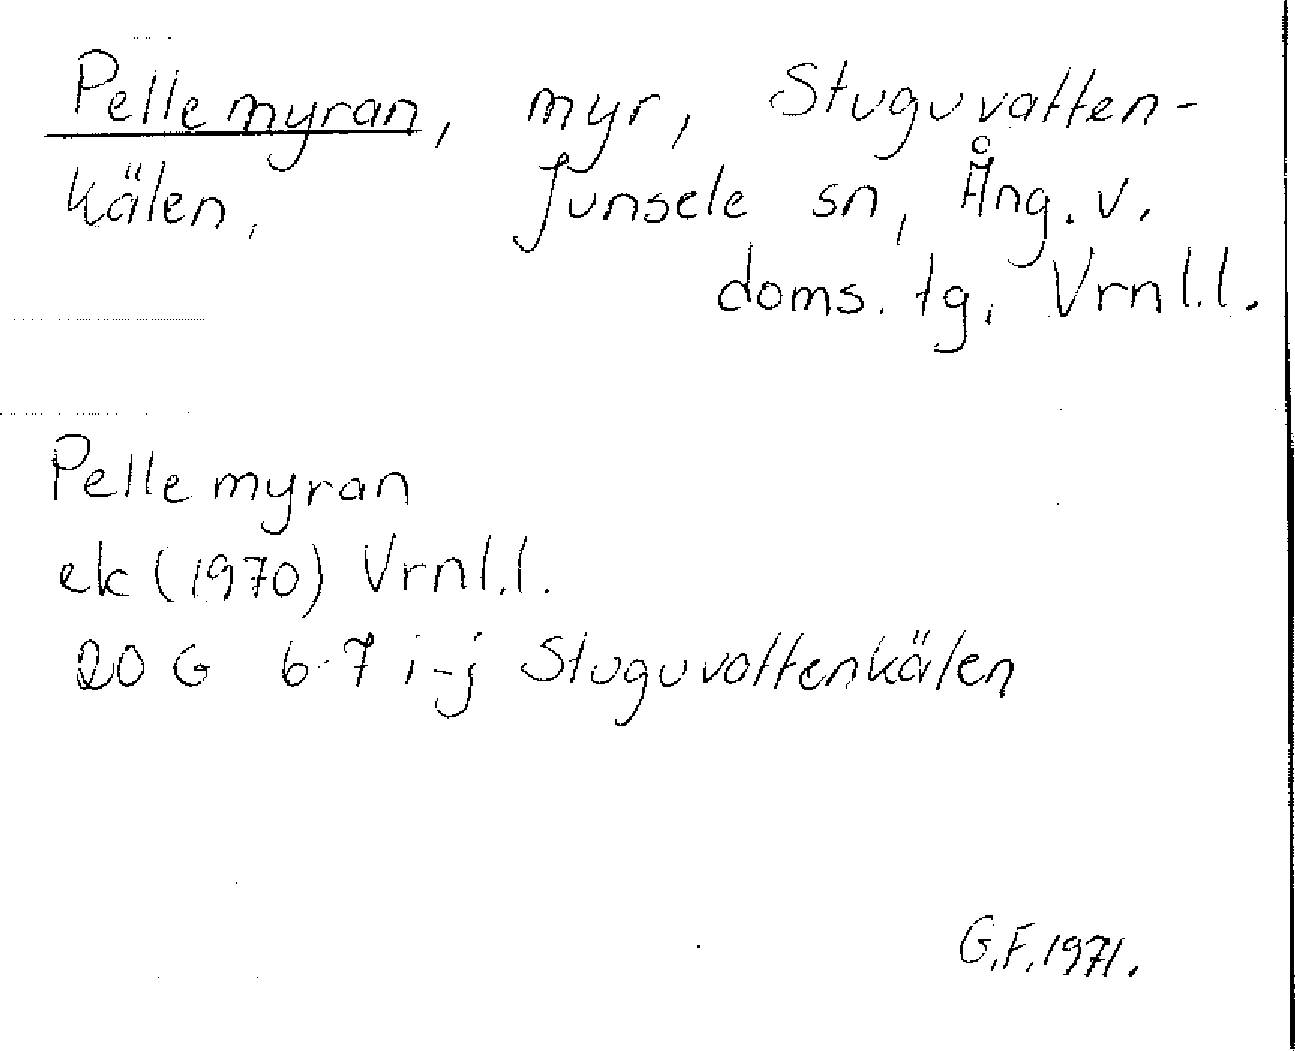 Pellemyran, myr, Stuguvatten-
kälen, Junsele sn, Ång. v.
doms. tg, Vrnl.l.
Pellemyran
ek (1970) Vrnl.l.
20 G 6-7 i-j Stuguvattenkälen
G.F. 1971.